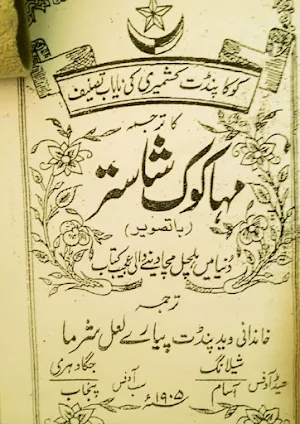 کوکا پنڈت کشمیری کی نایاب تصنیف
کا ترجمہ
مہا کوک شاستر
(باتصویر)
دُنیا میں ہلچل مچا دینے والی عجیب کتاب
ترجمہ
خاندانی وید پنڈت پیارے لعل شرما
شیلانگ جگادہری
ہیڈ آفس آسام سب آفس پنجاب
۱۹۰۵ء